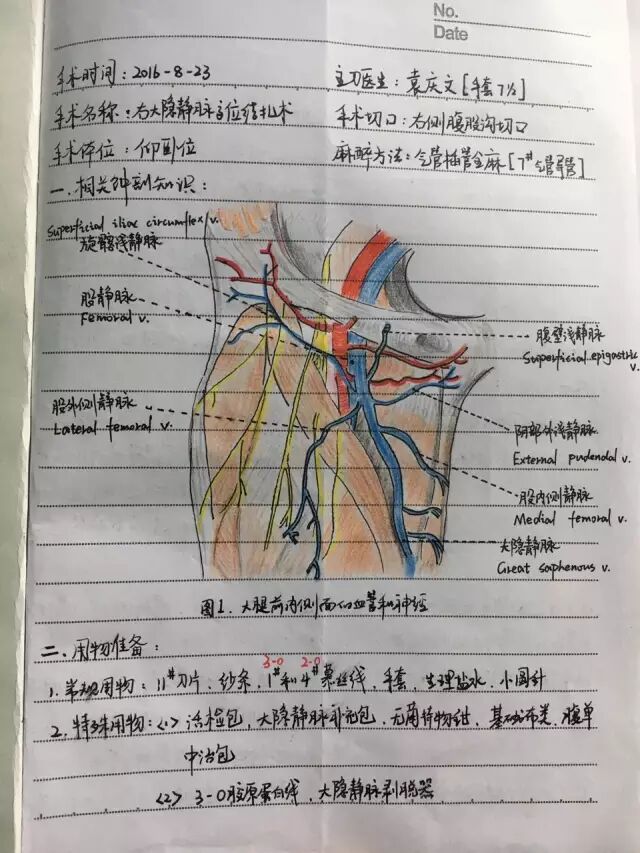 No.
Date
手术时间：2016-8-23
主刀医生：袁庆文［手套7½］
手术名称：右大隐静脉高位结扎术
手术切口：右侧腹股沟切口
手术体位：仰卧位
麻醉方法：气管插管全麻［7#气管导管］
一.相关解剖知识：
Superficial iliac circumflex v.
旋髂浅静脉
股静脉
Femoral v.
腹壁浅静脉
Superficial epigastric v.
股外侧静脉
Lateral femoral v.
阴部外浅静脉
External pudendal v.
股内侧静脉
Medial femoral v.
大隐静脉
Great saphenous v.
图1.大腿前内侧面的血管和神经
二.用物准备：
3-0 2-0
1.常规用物：11#刀片、纱条、1#和4#慕丝线、手套、生理盐水、小圆针
2.特殊用物：<1> 活检包、大隐静脉补充包、无菌持物钳、基础布类、腹单
中治包
<2> 3-0胶原蛋白线、大隐静脉剥脱器